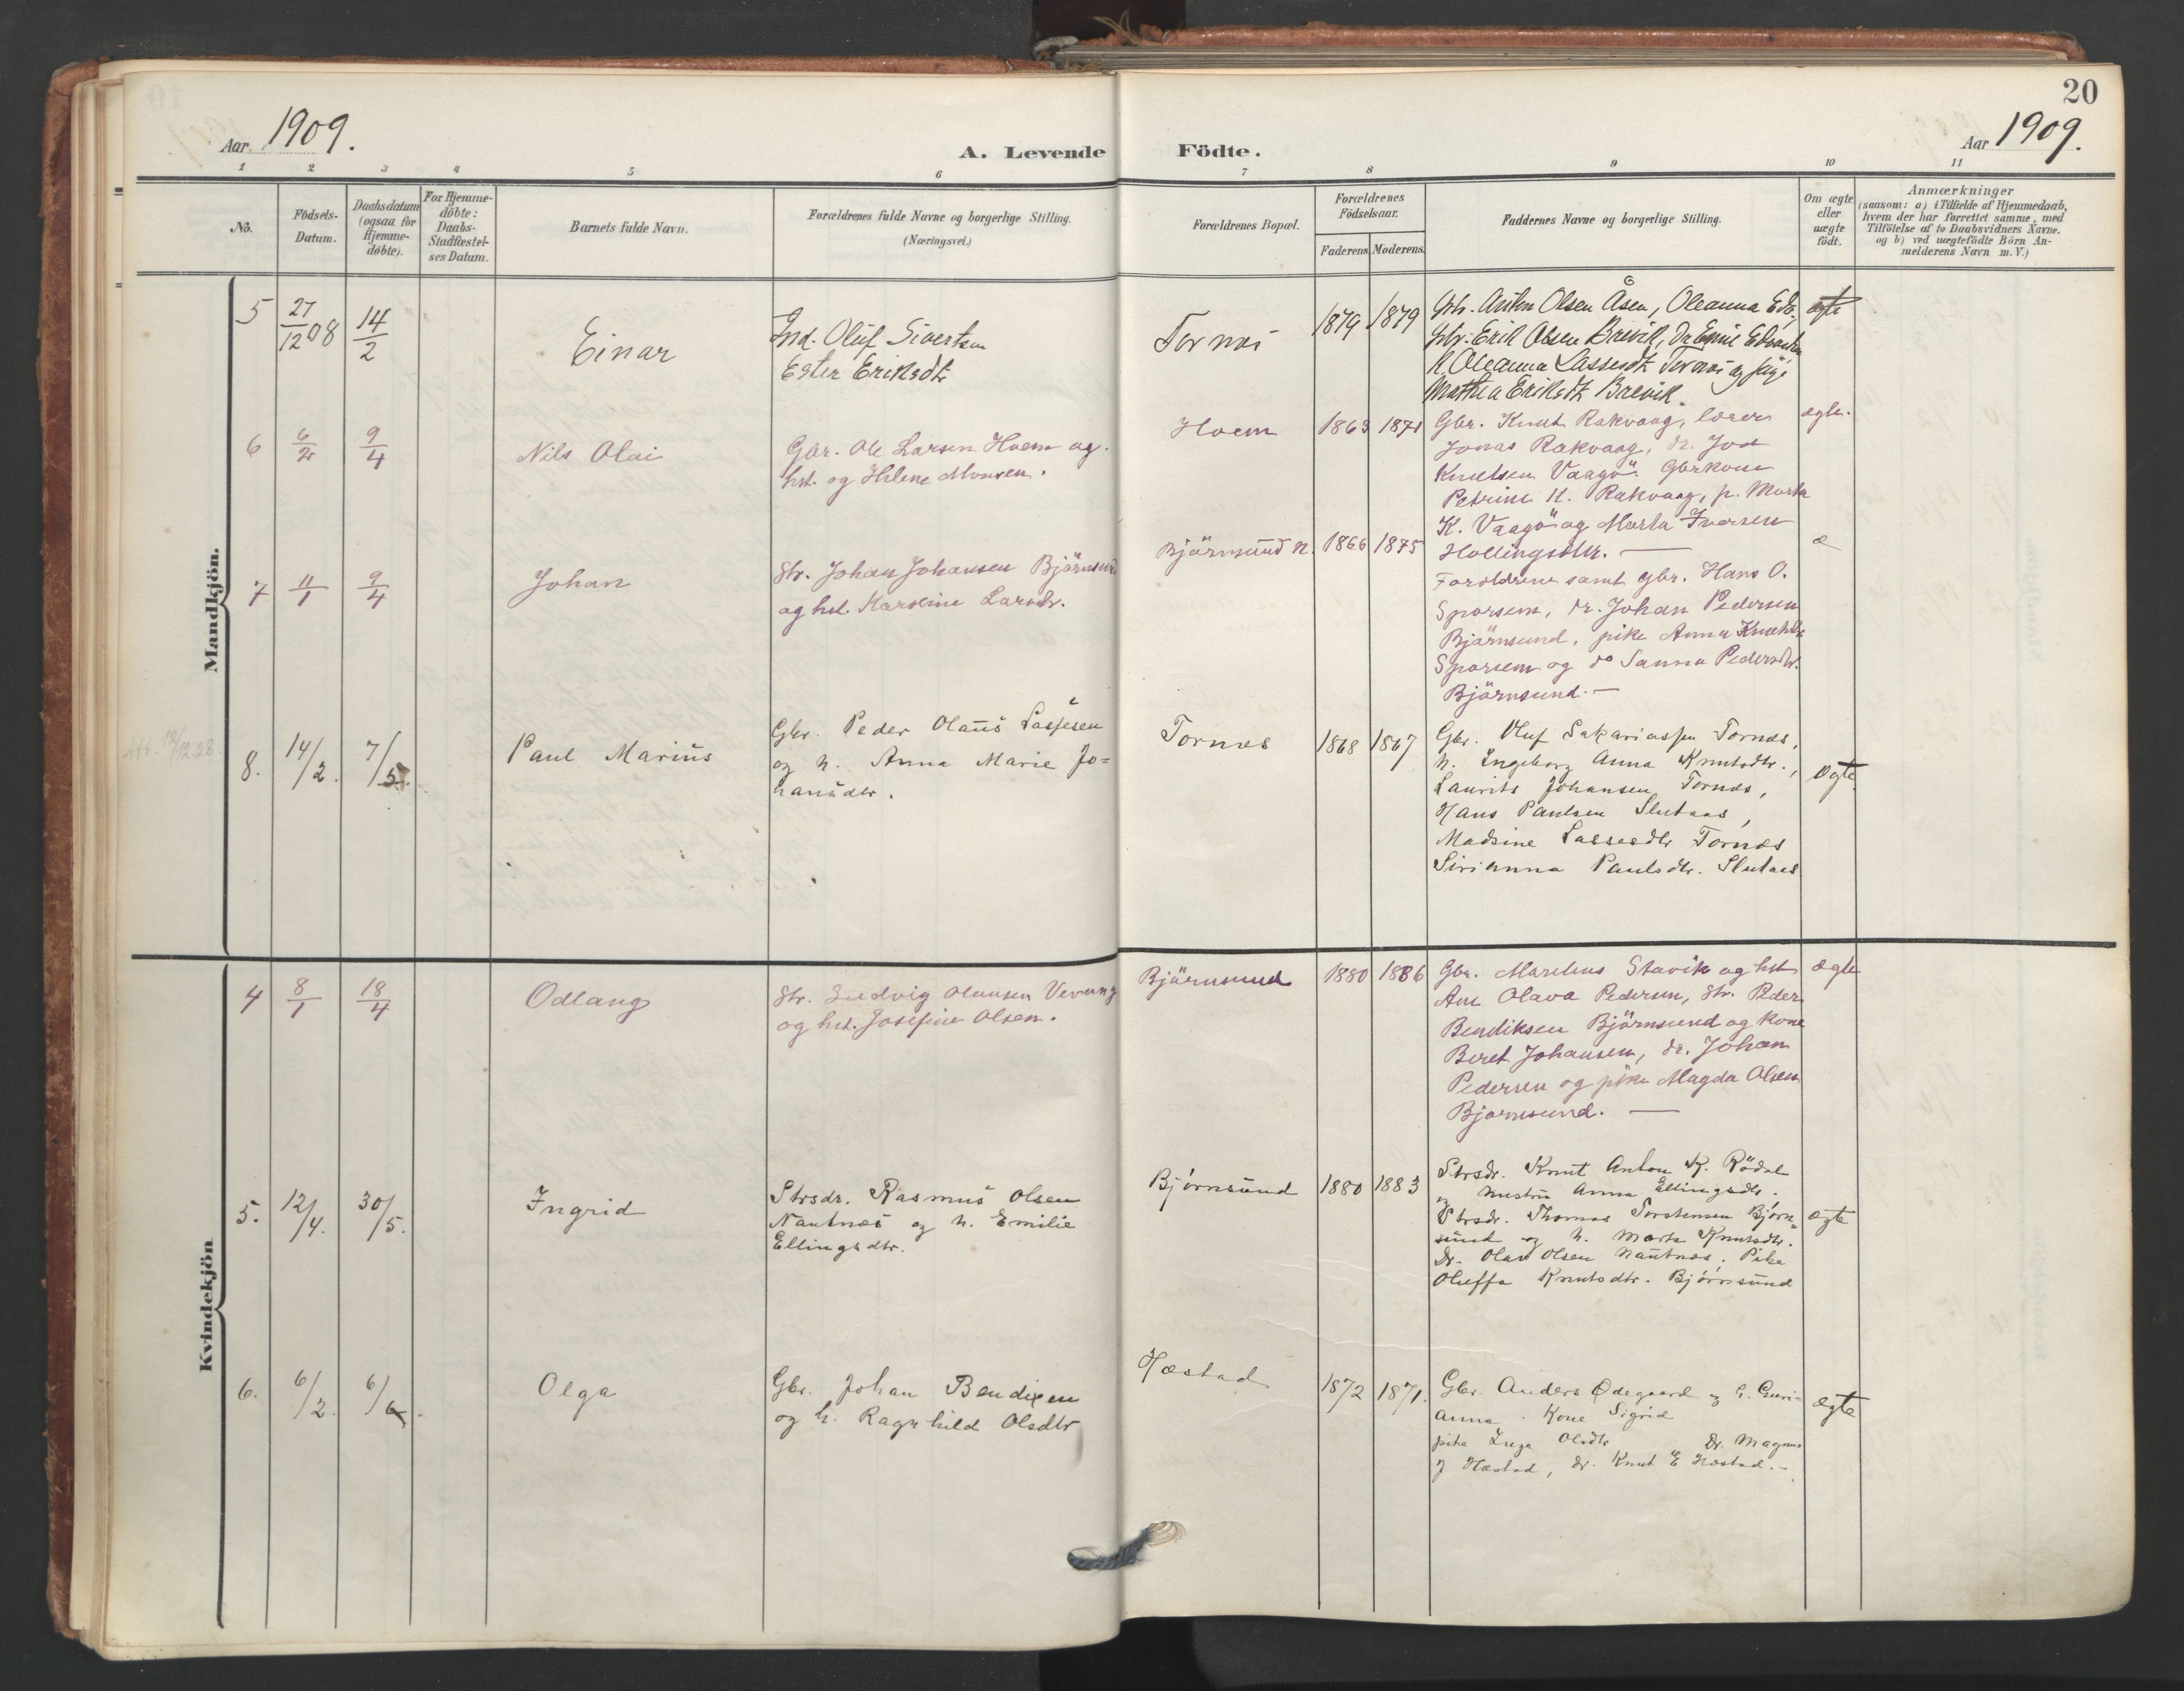 20
Aar 1909.
A. Levende Födte.
Aar 1909.
1 2 3 4 5 6 7 8 9 10 11
No.
Födsels-
Datum.
Daabsdatum
(ogsaa for
Hjemme-
döbte).
For Hjemme-
döbte:
Daabs-
Stadfæstel-
ses Datum.
Barnets fulde Navn.
Forældrenes fulde Navne og borgerlige Stilling.
(Næringsvei.)
Forældrenes Bopæl.
Forældrenes
Födselsaar.
Faderens. Moderens.
Faddernes Navne og borgerlige Stilling.
Om ægte
eller
uægte
födt.
Anmærkninger
(saasom: a) i Tilfælde af Hjemmedaab,
hvem der har forrettet samme, med
Tilföielse af to Daabsvidners Navne,
og b) ved uægtefödte Börn An-
melderens Navn m. V.)
Mandkjön.
5
27/12 08
14/2
Einar
Ind. Oluf Sivertsen
Ester Eriksdtr
Tornes
1879 1879
Gbr. Olsen Åsen, Oleanna
Gbr. Erik Olsen Brevik, Dr Emil
K. Oleanna Lassesdtr Tornes og pige
Mathea Eriksdtr Brevik.
ægte
6
6/2
9/4
Nils Olai
Gbr. Ole Larsen Hoem og
hst. og Helene Monsen.
Hoem
1863 1871
Gbr. Knut Rakvaag, lærer
Jonas Rakvaag, dr.
Knutsen Vaagö. Gbrkone
Petrine K. Rakvaag, p. Marta
K. Vaagö og Marta Iversen
Hollingsdtr. —
ægte.
7
11/1
9/4
Johan
Str. Johan Johansen Björnsund
og hst. Karoline Larsdtr.
Björnsund n.
1866 1875
Forældrene samt gbr. Hans O.
Sporsem, dr. Johan Pedersen
Björnsund, pike Anna Knutsdtr
Sporsem og do Sanna Pedersdtr.
Björnsund. —
æ
Att. 12/12 28
8.
14/2.
7/5.
Paul Marius
Gbr. Peder Olaus Lassesen
og h. Anna Marie Jo=
hansdtr.
Tornes
1868 1867
Gbr. Oluf Sakariassen Tornes,
h. Ingeborg Anna Knutsdtr.,
Laurits Johansen Tornes,
Hans Paulsen Slutaas,
Madsine Lassesdtr Tornes
Sirianna Paulsdtr. Slutaas
ægte
Kvindekjön
4
8/1
18/4
Odlaug
Str. Ludvig Olausen Vevang
og hst. Josefine Olsen.
Björnsund
1880 1886
Gbr. Marelius Stavik og hst
Ane Olava Pedersen, Str. Peder
Bendiksen Björnsund og kone
Beret Johansen, dr. Johan
Pedersen og pike Magda Olsen
Bjornsund. —
ægte
5.
12/4.
30/5.
Ingrid
Strsdr. Rasmus Olsen
Nautnes og h. Emilie
Ellingsdtr.
Bjørnsund
1880 1883
Strsdr. Knut Anton K. Rödal
og hustru Anna Ellingsdtr.
Strsdr. Thomas Torstensen Bjørn=
sund og h. Marta Knutsdtr.
Dr. Olav Olsen Nautnes. Pike
Oluffa Knutsdtr. Bjørnsund
ægte
6.
6/2.
6/6.
Olga
Gbr. Johan Bendixen
og h. Ragnhild Olsdtr
Hæstad
1872 1871.
Gbr. Anders Ødegaard og h. Guri-
anna. Kone Sigrid
pike Inga Olsdtr Dr. Magnus
J Hæstad, dr. Knut E Hæstad. -
ægte